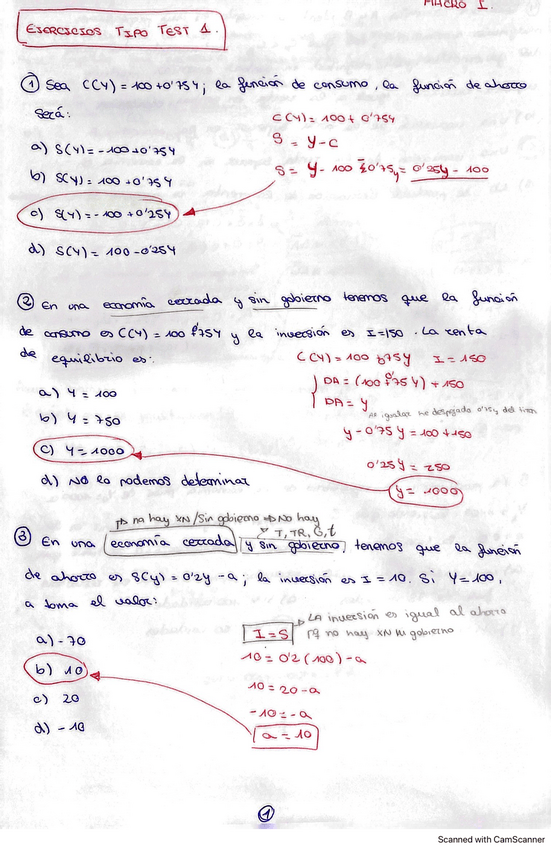 MACRO I.
EJERCICIOS TIPO TEST 1.
① Sea C(Y) = 100 + 0'75Y; la función de consumo, la función de ahorro
será:
C(Y) = 100 + 0'75Y
a) S(Y) = -100 + 0'75Y
S = Y - C
b) S(Y) = 100 + 0'75Y
S = Y - 100 - 0'75Y = 0'25Y - 100
c) S(Y) = -100 + 0'25Y
d) S(Y) = 100 - 0'25Y
② En una economía cerrada y sin gobierno tenemos que la función
de consumo es C(Y) = 100 + 0'75Y y la inversión es I = 150. La renta
de equilibrio es:
C(Y) = 100 + 0'75Y I = 150
DA = (100 + 0'75 Y) + 150
a) Y = 100
DA = Y
b) Y = 750
Al igualar me despejado 0'75y del
c) Y = 1000
Y - 0'75 Y = 100 + 150
0'25Y = 250
d) NO lo podemos determinar
Y = 1000
no hay XN / Sin gobierno → No hay
T, TR, G, t
③ En una economía cerrada y sin gobierno, tenemos que la función
de ahorro es S(y) = 0'2y - a; la inversión es I = 10. Si Y = 100,
a toma el valor:
LA inversión es igual al ahorro
I = S
pq no hay XN ni gobierno
a) - 70
10 = 0'2 (100) - a
b) 10
10 = 20 - a
c) 20
-10 = -a
d) - 10
a = 10
1
Scanned with CamScanner